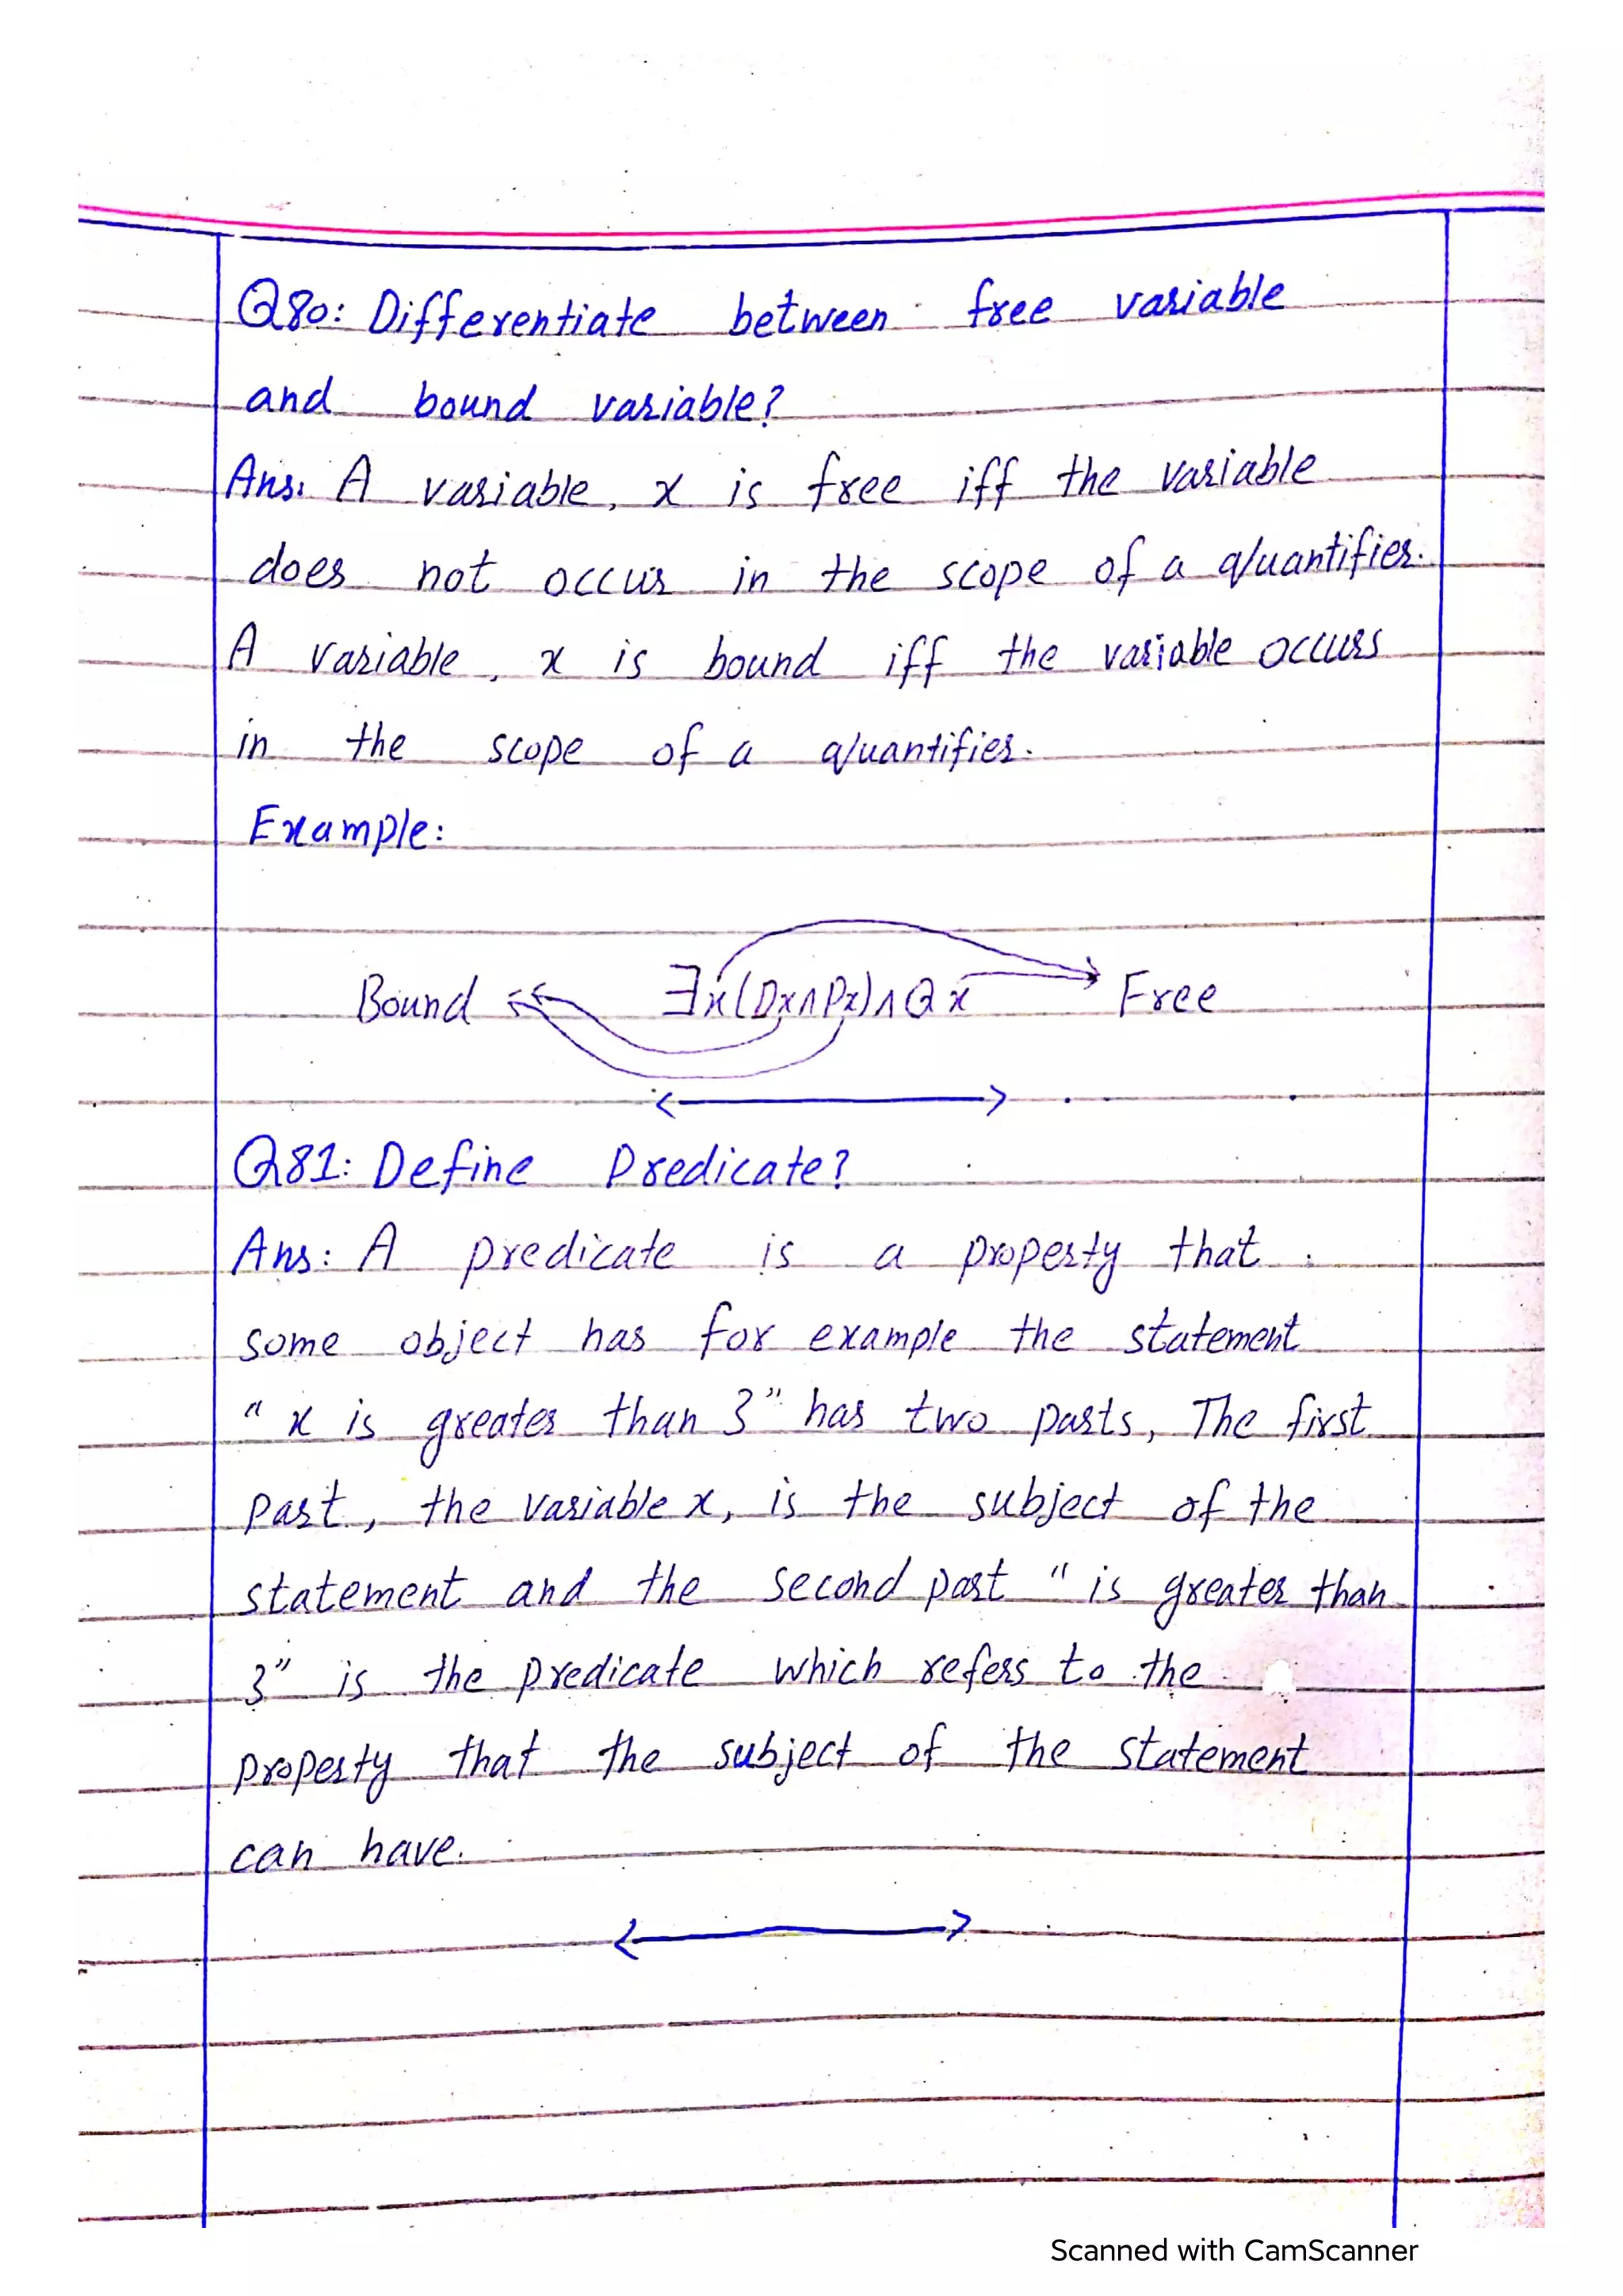 Q80: Differentiate between free variable
and bound variable?
Ans: A variable, x is free iff the variable
does not occur in the scope of a quantifier.
A variable, x is bound iff the variable occurs
in the scope of a quantifier.
Example:
Bound ∃x(Dx∧Px)∧Qx Free
Q81: Define Predicate?
Ans: A predicate is a property that
some object has for example the statement
" x is greater than 3" has two parts, The first
part, the variable x, is the subject of the
statement and the second part " is greater than
3" is the predicate which refers to the
property that the subject of the statement
can have.
Scanned with CamScanner